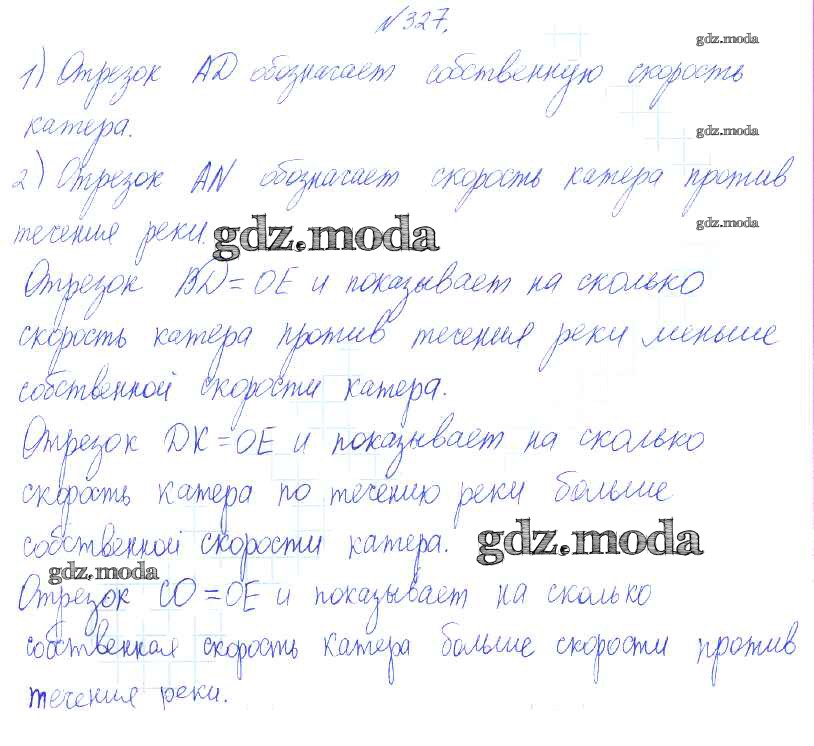 №327.
gdz.moda
1) Отрезок AD обозначает собственную скорость
катера.
gdz.moda
2) Отрезок AN обозначает скорость катера против
gdz.moda
течения реки.
gdz.moda
Отрезок BD = OE и показывает на сколько
скорость катера против течения реки меньше
собственной скорости катера.
Отрезок DK = OE и показывает на сколько
скорость катера по течению реки больше
собственной скорости катера.
gdz.moda
gdz.moda
Отрезок CO = OE и показывает на сколько
собственная скорость катера больше скорости против
течения реки.